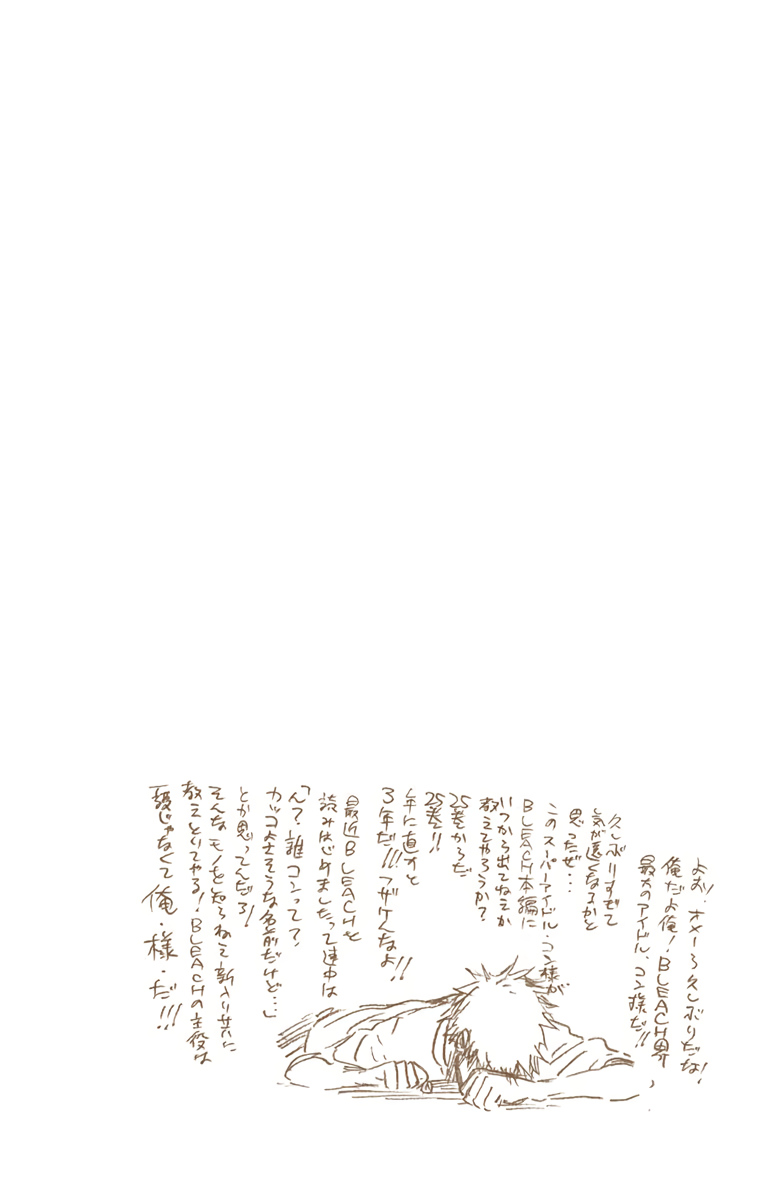 よお!オメーら久しぶりだな!
俺だよ俺!BLEACH界
最大のアイドル、コン様だ!!
久しぶりすぎて
気が遠くなるかと
思ったぜ…
このスーパーアイドル・コン様が
BLEACH本編に
いつから出てねえか
教えてやろうか?
25巻からだ
25巻!!
年に直すと
3年だ!!!フザケんなよ!!
最近BLEACHを
読みはじめましたって連中は
「んで?誰コンって?
カッコよさそうな名前だけど…」
とか思ってんだろ!
そんなモノを知らねえ新入り共に
教えといてやる!BLEACHの主役は
一護じゃなくて俺・様・だ!!!